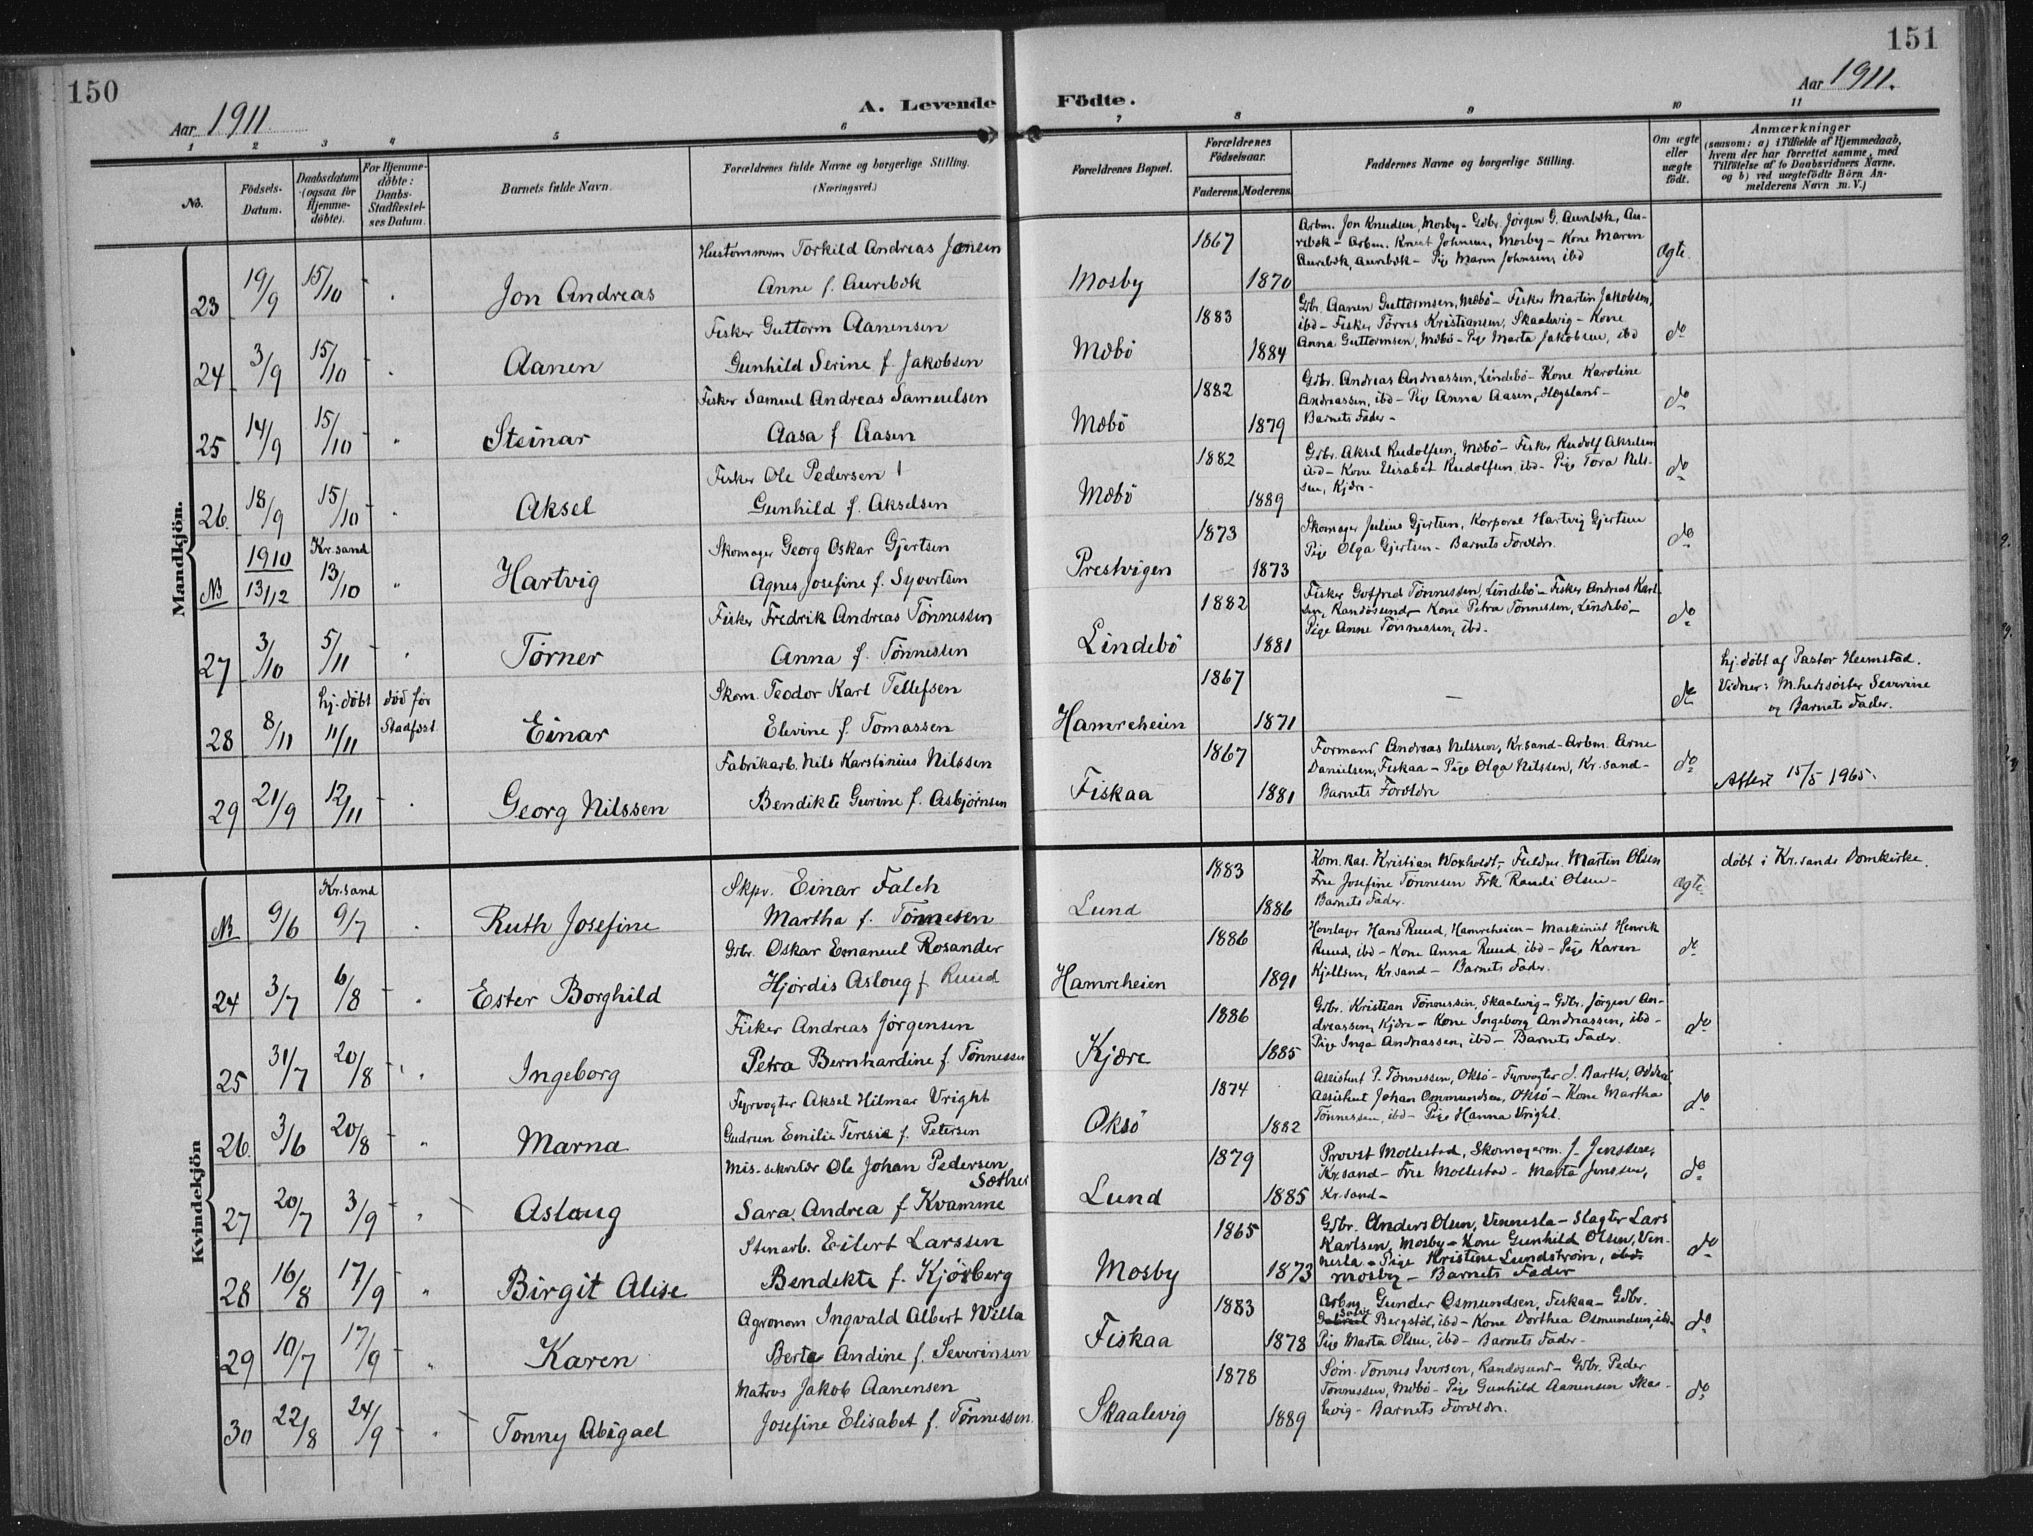 150
151
Aar 1911.
A. Levende Födte.
Aar 1911.
1 2 3 4 5 6 7 8 9 10 11
No.
Födsels-
Datum.
Daabsdatum
(ogsaa for
Hjemme-
döbte).
For Hjemme-
döbte:
Daabs-
Stadfæstel-
ses Datum.
Barnets fulde Navn.
Forældrenes fulde Navne og borgerlige Stilling.
(Næringsvei.)
Forældrenes Bopæl.
Forældrenes
Födselsaar.
Faderens. Moderens.
Faddernes Navne og borgerlige Stilling.
Om ægte
eller
uægte
født.
Anmærkninger
(saasom: a) i Tilfælde af Hjemmedaab,
hvem der har forrettet samme, med
Tilföielse af to Daabsvidners Navne,
og b) ved uægtefödte Börn An-
melderens Navn m. V.)
Mandkjön.
23 19/9 15/10 - " Jon Andreas
Hustømmerm Torkild Andreas Jensen
Anne f. Aurebæk
Mosby 1867 1870
Arbm. Jon Knudsen, Mosby - Gdbr. Jørgen G. Aurebæk, Au-
rebæk - Arbm. Knut Johnsen, Mosby - Kone Maren
Aurebæk, Aurebæk - Pige Maren Johnsen, ibd
Ægte
24 3/9 15/10 - " Aanen
Fisker Guttorm Aanensen
Gunhild Serine f. Jakobsen
Mæbö 1883 1884
Gbr. Aanen Guttormsen, Mæbö - Fisker Martin Jakobsen,
ibd - Fisker Törres Kristiansen, Skaalevig - Kone
Anna Guttormsen, Mæbö - Pige Marta Jakobsen, ibd
do
25 14/9 15/10 - " Steinar
Fisker Samuel Andreas Samuelsen
Aasa f. Aasen
Mæbö 1882 1879
Gdbr. Andreas Andreassen, Lindebö - Kone Karoline
Andreassen, ibd - Pige Anna Aasen, Hægeland -
Barnets Fader -
do
26. 18/9 15/10 - " Aksel
Fisker Ole Pedersen
Gunhild f. Akselsen
Mæbö 1882 1889
Gdbr. Aksel Rudolfsen, Mæbö - Fisker Rudolf Akselsen
ibd - Kone Elisabet Rudolfsen, ibd - Pige Tora Nils-
sen, Kjære -
do
NB 1910 13/12 Kr.sand 13/10 " Hartvig
Skomager Georg Oskar Gjertsen
Agnes Josefine f. Syvertsen
Prestvigen 1873 1873
Skomager Julius Gjertsen, Korporal Hartvig Gjertsen
Pige Olga Gjertsen - Barnets Forældre.
do
27 3/10 5/11 - " Tørner
Fisker Fredrik Andreas Tønnessen
Anna f. Tønnessen
Lindebö 1882 1881
Fisker Gotfred Tønnessen, Lindebö - Fisker Andreas Karl-
sen, Randøsund - Kone Petra Tønnessen, Lindebö -
Pige Anne Tønnessen, ibd.
do
28 8/11 hj. døbt 11/11 død før Stadfæst. Einar
Skom. Teodor Karl Tellefsen
Elevine f. Tomassen
Hamreheien 1867 1871
-
do
hj. døbt af Pastor Heimstad.
Vidner: M.hedssøster Severine
og Barnets Fader.
29 21/9 12/11 - " Georg Nilssen
Fabrikarb. Nils Karstinius Nilssen
Bendikte Gurine f. Asbjørnsen
Fiskaa 1867 1881
Formand Andreas Nilssen, Kr.sand - Arbm. Arne
Danielsen, Fiskaa - Pige Olga Nilssen, Kr.sand -
Barnets Forældre
do
Attest 15/5 1965.
Kvindekjön
NB 9/6 Kr.sand 9/7 " Ruth Josefine
Skpr. Einar Falch
Martha f. Tønnesen
Lund 1883 1886
Kom. kas. Kristian Woxholdt, - Fuldm. Martin Olsen
Frue Josefine Tønnesen Frk. Randi Olsen -
Barnets Fader.
Ægte
døbt i Kr.sands Domkirke.
24 3/7 6/8 - " Ester Borghild
Gbr. Oskar Emanuel Rosander
Hjørdis Asloug f. Ruud
Hamreheien 1886 1891
Hovslager Hans Ruud, Hamreheien - Maskinist Henrik
Ruud, ibd - Kone Anna Ruud, ibd - Pige Karen
Kjellsen, Kr.sand - Barnets Fader.
do
25 31/7 20/8 - " Ingeborg
Fisker Andreas Jørgensen
Petra Bernhardine f. Tønnessen
Kjære 1886 1885
Gdbr. Kristian Tønnessen, Skaalevig - Gdbr. Jørgen An-
dreassen, Kjære - Kone Ingeborg Andreassen, ibd -
Pige Inga Andreassen, ibd - Barnets Fader.
do
26. 3/6 20/8 - " Marna
Fyrvogter Aksel Hilmar Wright
Gudrun Emilie Teresie f. Petersen
Oksö 1874 1882
Assistent P. Tønnessen, Oksö - Fyrvogter J. Barth,
Assistent Johan Ommundsen, Oksö - Kone Martha
Tønnessen, ibd - Pige Hanna Wright.
do
27 20/7 3/9 - " Aslaug
Mis.-sekretær Ole Johan Pedersen
Sæther
Sara Andrea f. Kvamme
Lund 1879 1885
Provst Mollestad, Skomagerm. J. Jenssen,
Kr.sand - Frue Mollestad - Marta Jenssen,
Kr.sand -
do
28 16/8 17/9 - " Birgit Alise
Stenarb. Eilert Larssen
Bendikte f. Kjørberg
Mosby 1865 1873
Gdbr. Anders Olsen, Vennesla - Slagter Lars
Karlsen, Mosby - Kone Gunhild Olsen, Ven-
nesla - Pige Kristine Lundstrøm, ibd
Mosby - Barnets Fader
do
29 10/7 17/9 - " Karen
Agronom Ingvald Albert Willa
Berte Andine f. Severinsen
Fiskaa 1883 1878
Arbm. Gunder Osmundsen, Fiskaa - Gdbr.
Gabriel Salve Bergstøl, ibd - Kone Dorthea Osmundsen, ibd -
Pige Marta Olsen, ibd - Barnets Fader -
do
30 22/8 24/9 - " Tonny Abigael
Matros Jakob Aanensen
Josefine Elisabet f. Tønnessen
Skaalevig 1878 1889
Søm. Tønnes Iversen, Randøsund - Gdbr. Peder
Tønnessen, Mæbö - Pige Gunhild Aanensen Skaa-
levig - Barnets Forældre.
do